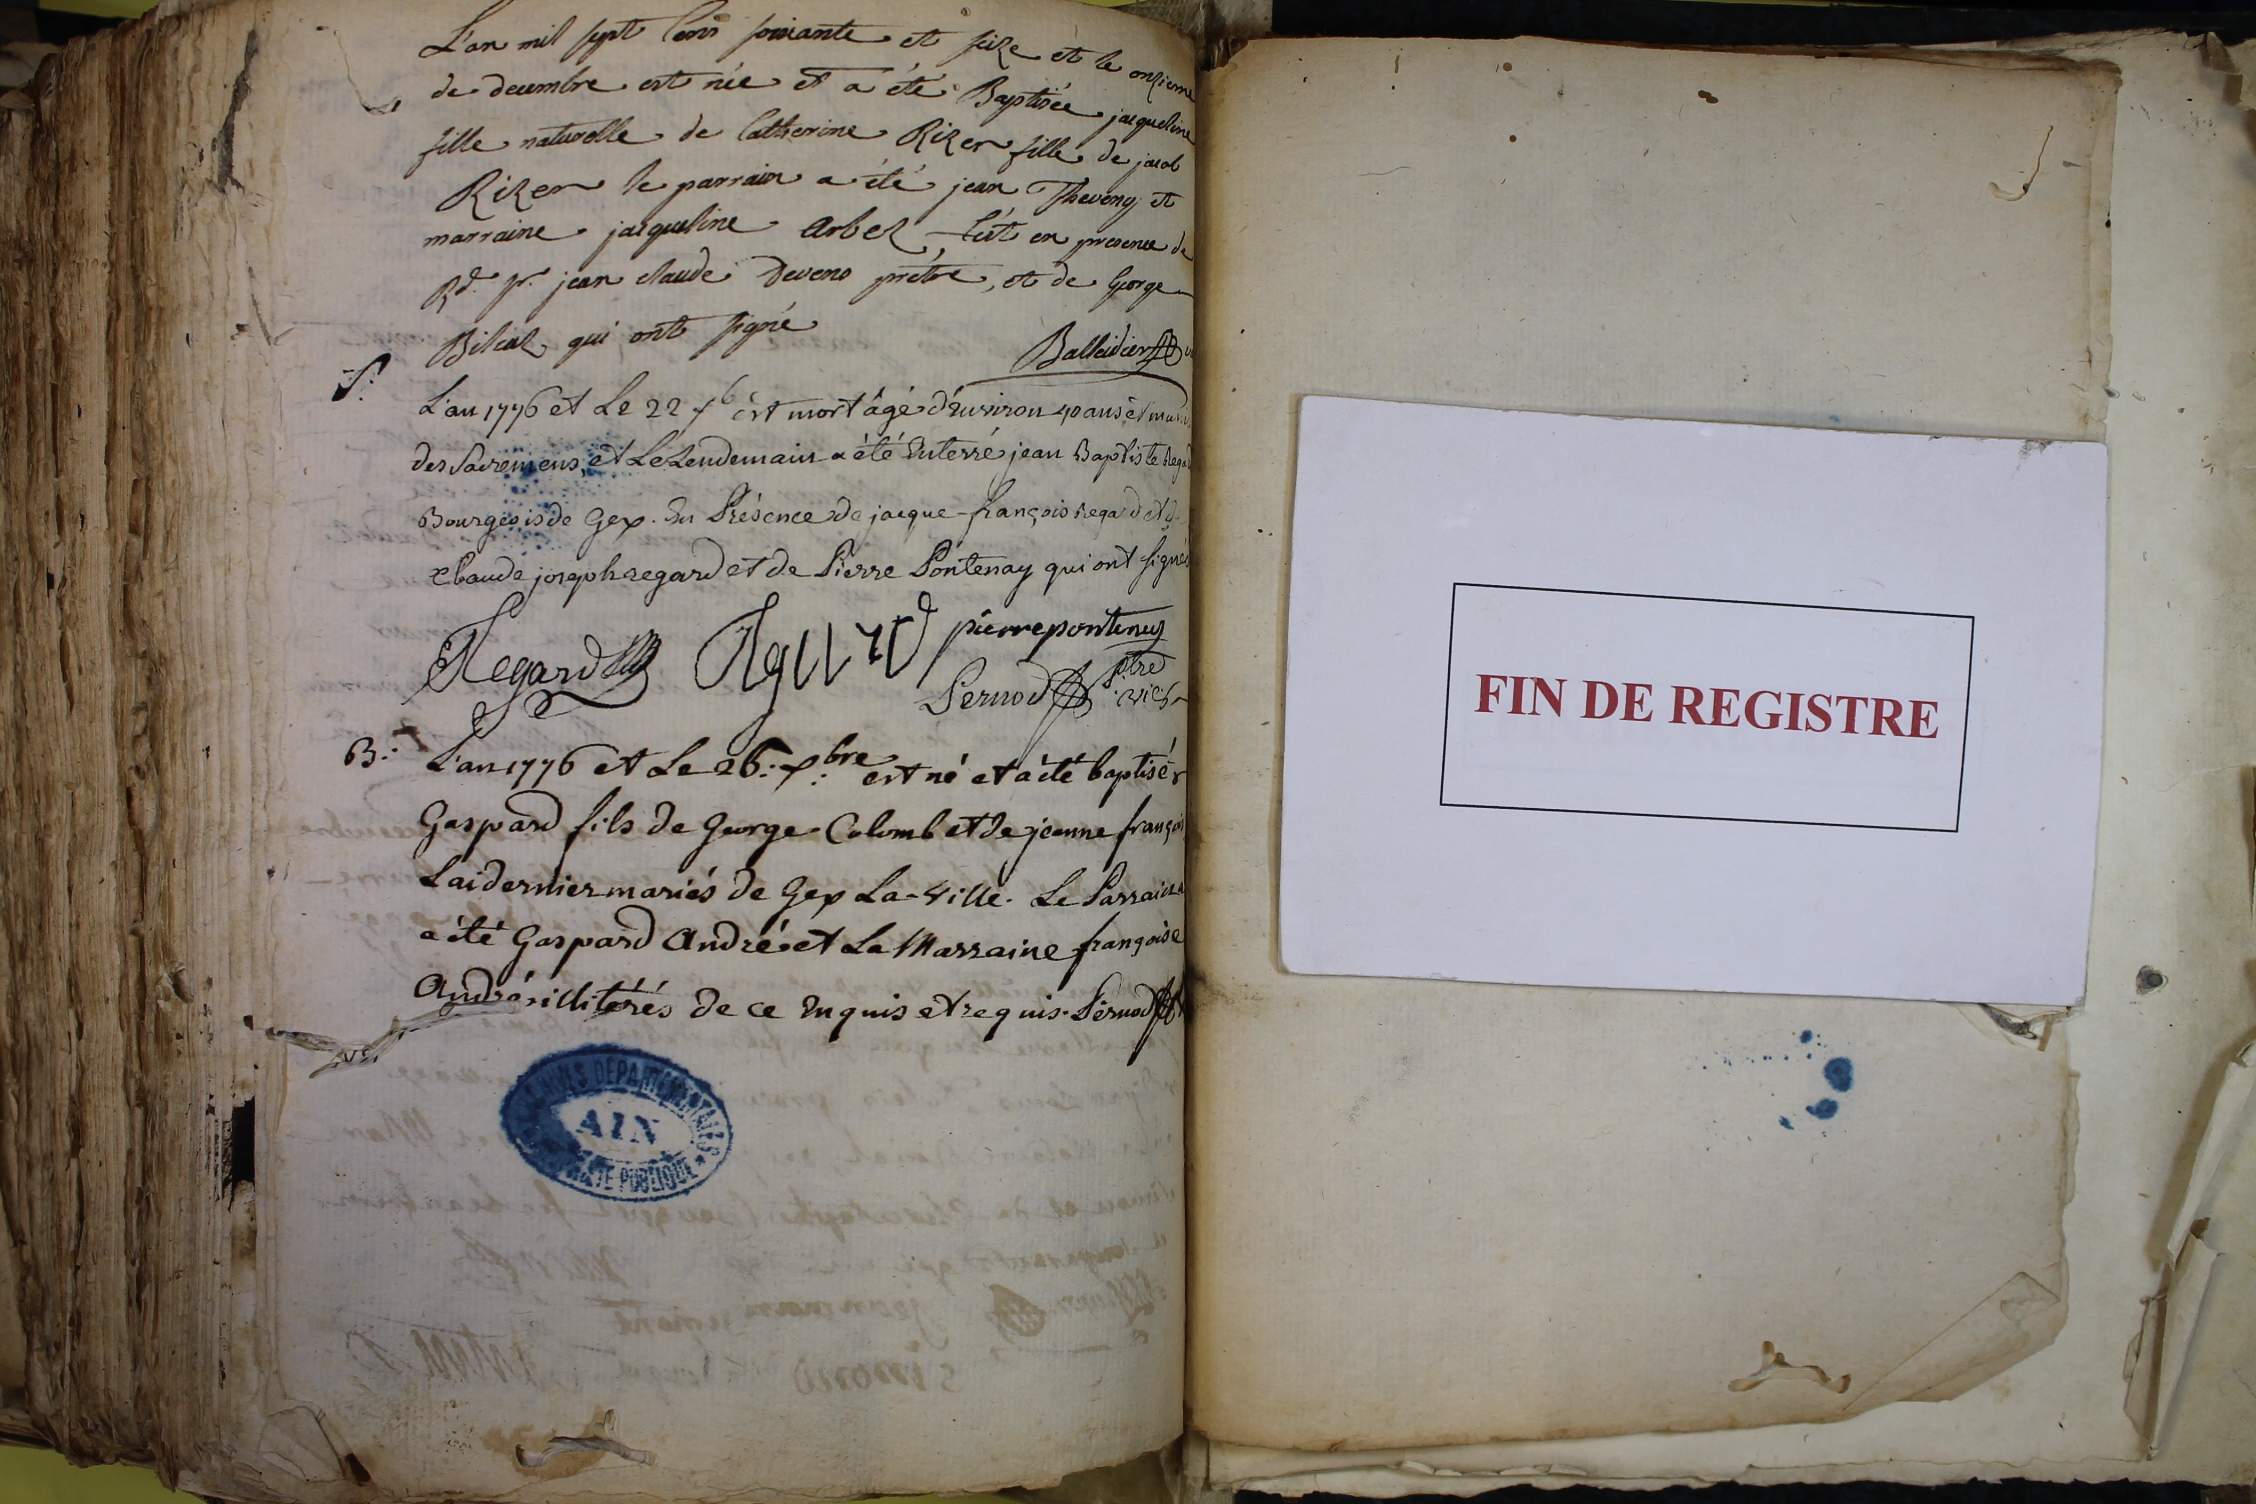 L'an mil sept Cens soixante et seize et le onzieme
de decembre est née et a été Baptisée jacqueline
fille naturelle de Catherine Rizer fille de jacob
Rizer le parrain a été jean Theveny et
marraine jacqueline Arbez, C'est en presence de
Rd. Jean claude Deveno prêtre, et de George
qui ont signé
Balleidier
S.
L'an 1776 et Le 22 Xb est mort âgé d'Environ 40 ans et muni
des Sacremens, et Le Lendemain a été Enterré jean Baptiste Regard
Bourgeois de Gex. En Présence de jacque-françois regard et
claude joseph regard et de Pierre Pontenay qui ont signés
Regard
pierre ponteney
Pernod ptre vic.
B.
L'an 1776 et Le 26: X:bre est né et a été baptisé
Gaspard fils de George Colomb et de jeanne françoi
Laidernier mariés de Gex La-Ville. Le Parrain
a été Gaspard André et La Marraine françoise
André illitérés de ce Enquis et requis. Pernod
ARCHIVES DÉPARTEMENTALES
AIN
PUBLIQUE
FIN DE REGISTRE